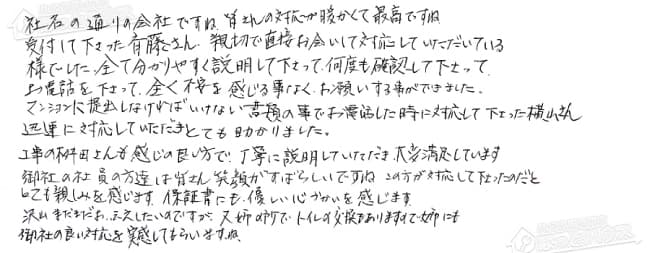 社名の通りの会社ですね。皆さんの対応が暖かくて最高ですね
受付して下さった斉藤さん、親切で直接お会いして対応していただいている
様でした。全て分かりやすく説明して下さって、何度も確認して下さって
お電話を下さって、全く不安を感じる事なく、お願いする事ができました。
マンションに提出しなければいけない書類の事でお電話した時に対応して下さった横山さん
迅速に対応していただきとても助かりました。
工事の村田さんも感じの良い方で、丁寧に説明していただき大変満足しています
御社の社員の方達は皆さん笑顔がすばらしいですね この方が対応して下さったのだと
とても親しみを感じます。保証書にも、優しい心づかいを感じます
沢山まだまだお伝えしたいのですが、又姉の所で、トイレの交換もありますので姉にも
御社の良い対応を実感してもらいますね。